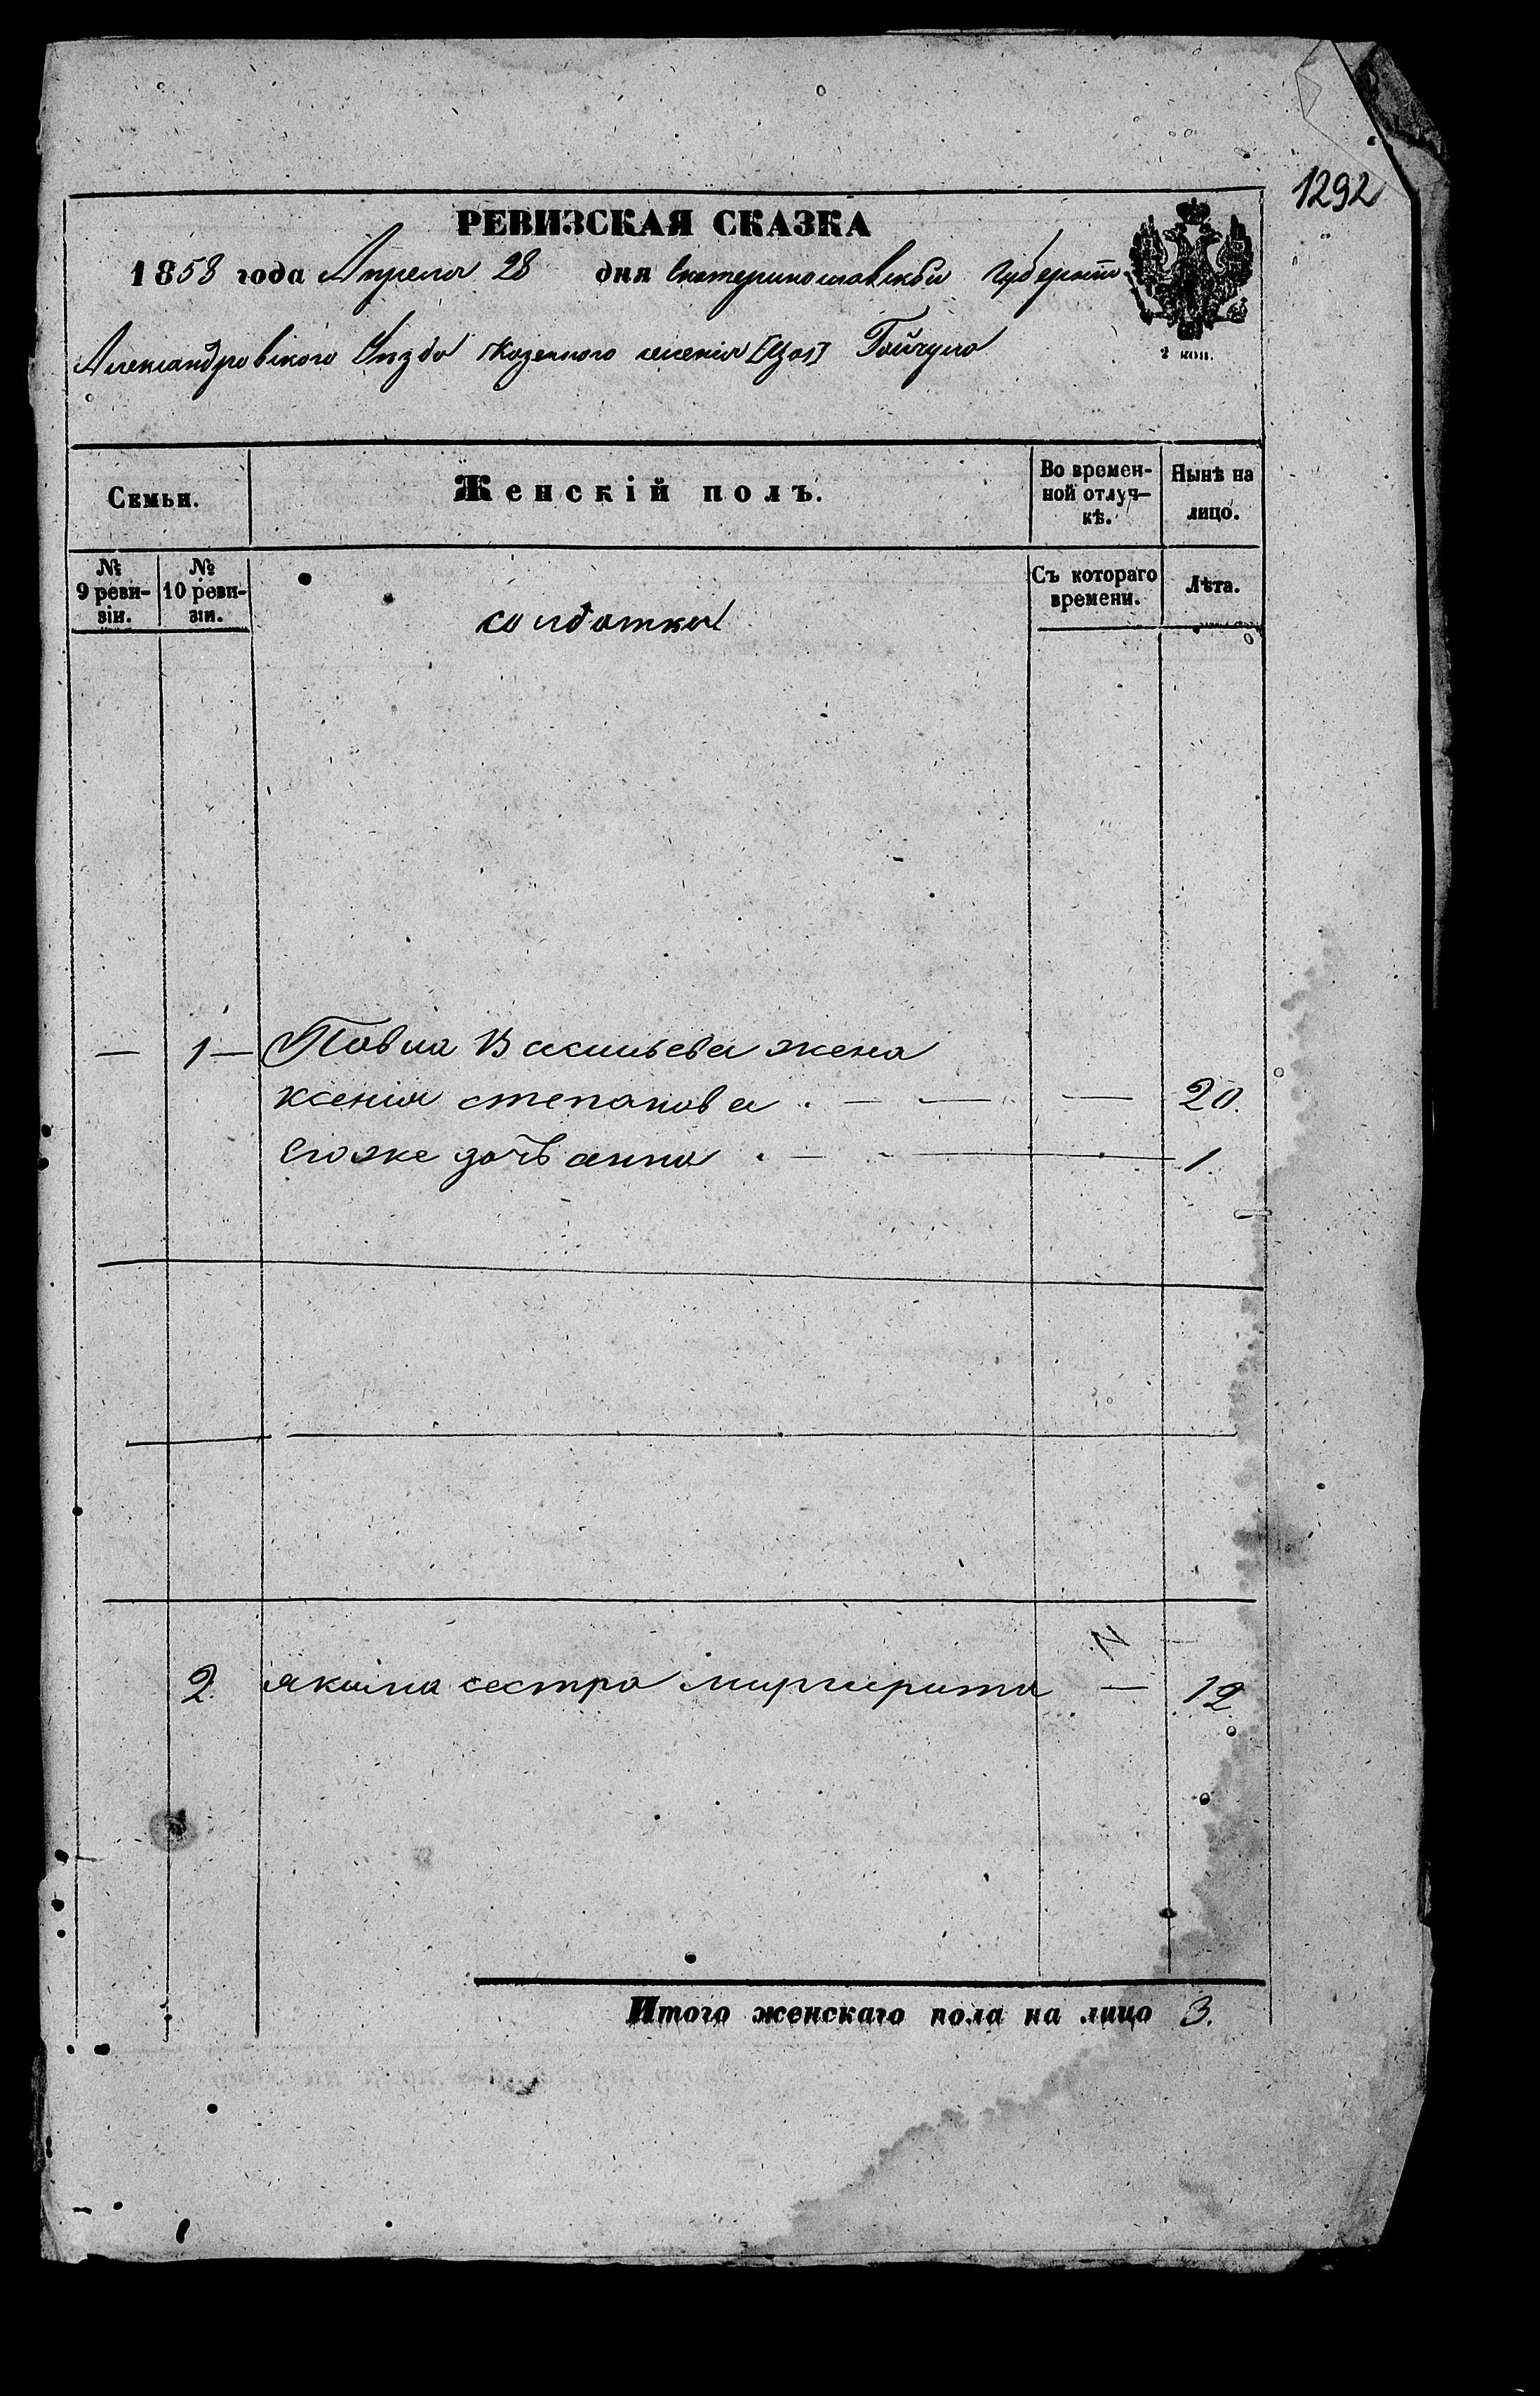 1292
РЕВИЗСКАЯ СКАЗКА
1858 года Апреля 28 дня Екатеринославской Губернии
Александровского Уезда Казенного селения [Цаз] Гайчула
2 коп.
Семьи.
Женскій полъ.
Во времен-
ной отлуч-
кѣ.
Нынѣ на
лицо.
№
9 реви-
зіи.
№
10 реви-
зіи.
солдатки
Съ котораго
времени.
Лѣта.
— 1 — Павла Васильева жена
ксения степанова . — — — 20.
его же дочь анна . — 1.
2. якима сестра маргарита — 12
Итого женскаго пола на лицо 3.